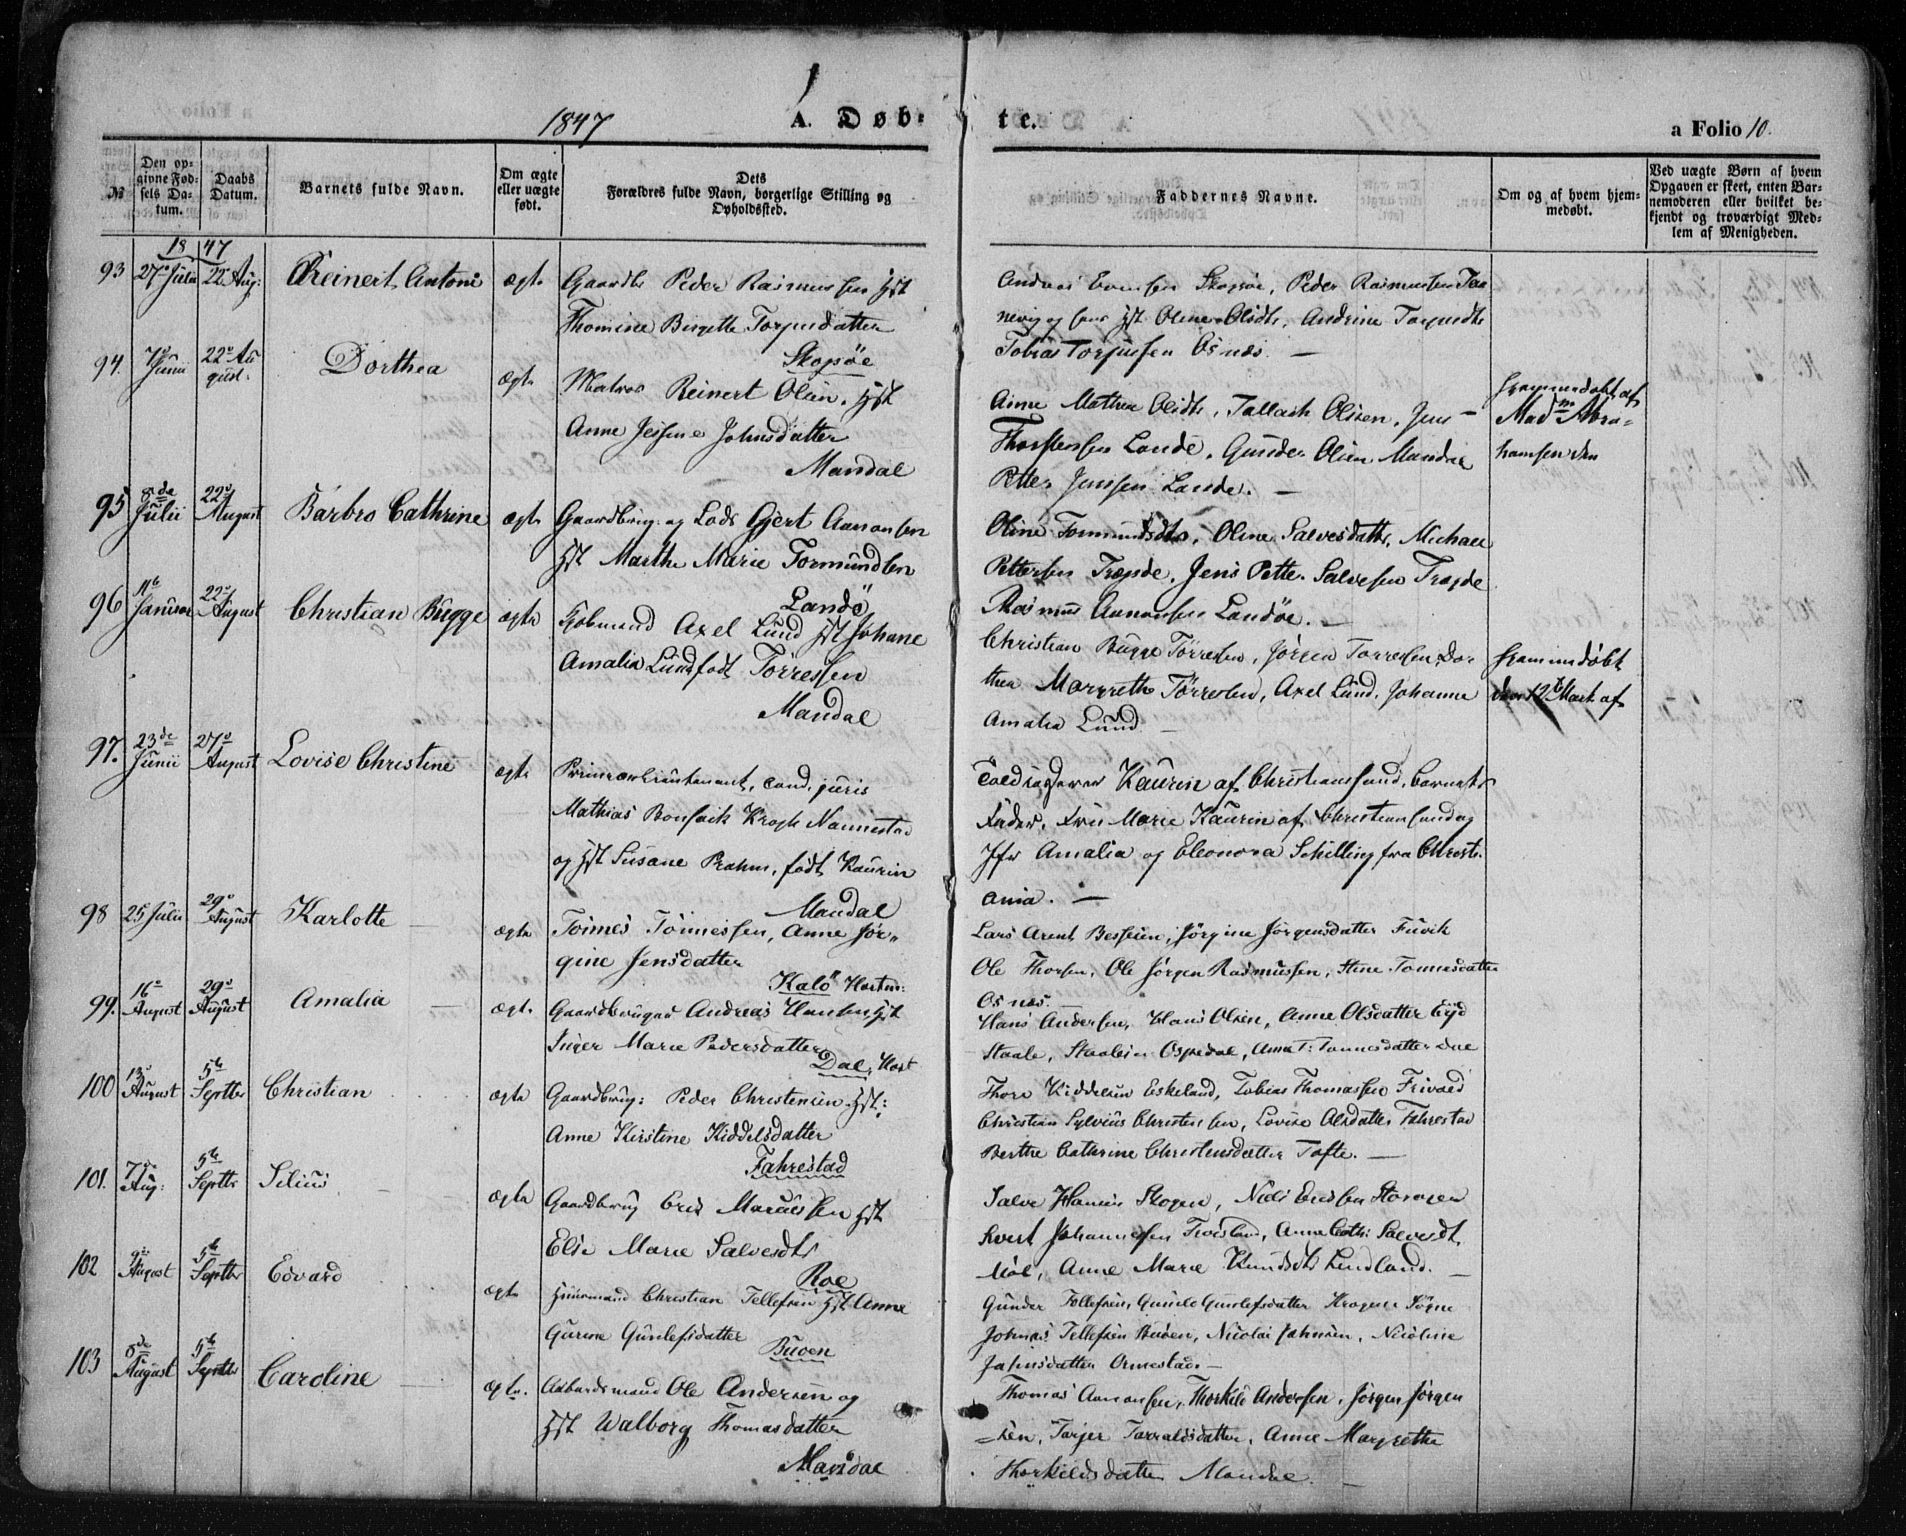 1847
A. Døb-
te.
a Folio 10.
№
Den op-
givne Fød-
sels Da-
tum.
Daabs
Datum.
Barnets fulde Navn.
Om ægte
eller uægte
født.
Dets
Forældres fulde Navn, borgerlige Stilling og
Opholdssted.
Faddernes Navne.
Om og af hvem hjem-
medøbt.
Ved uægte Børn af hvem
Opgaven er skeet, enten Bar-
nemoderen eller hvilket be-
kjendt og troværdigt Med-
lem af Menigheden.
1847
93
27 Julii
22 Aug:
Reinert Antoni
ægte
Gaardbr Peder Rasmussen Hst
Thomine Birgitte Torgusdatter
Skogsøe
Skogsøe, Peder Rasmussen
Hst Oline Olsdtr, Andrine
Tobias Torjussen Osnæs. —
94.
7 Junii
22 Au
gust.
Dorthea
ægte
Matros Reinert Olsen, Hst
Anne Johnsdatter
Mandal
Anne Mathea Olsdtr, Tallach Olsen, Jens
Thorstensen Lande, Gunder Olsen Mandal
Petter Jenssen Lande. —
hjemmedøbt af
Madm Abra-
hamsen den
95
8de
Julii
22
August
Barbro Cathrine
ægte
Gaardbrug. og Lods Gjert Aanonsen
Hst Marthe Marie Tormundsen
Landø
Oline Tormundsdtr, Oline Salvesdatter, Michael
Pettersen Trægde, Jens Petter Salvesen Trægde
Rasmus Aanonsen Landøe. —
96
Januar
22
August
Christian Bugge
ægte
Kjøbmand Axel Lund Hst Johane
Amalia Lund født Tørressen
Mandal
Christian Bugge Tørressen, Jørgen Tørressen, Dor
thea Margrethe Tørressen, Axel Lund, Johanne
Amalia Lund
hjemmedøbt
den 12 Mart af
97.
23de
Junii
27
August
Lovise Christine
ægte
Premierlieutenant, cand. juris
Mathias Krogh Nannestad
og Hst Susane Brahm, født Kaurin
Mandal
Kaurin af Christianssand, Barnets
Fader, Fru Marie Kaurin af Christianssand og
Jfr Amalia og Eleonora Schilling fra Christi-
ania. —
98
25 Julii
29
August
Karlotte —
ægte
Tønnes Tønnessen, Anne Jør-
gine Jensdatter
Kalø
Lars Arent Bessesen, Jørgine Jørgensdatter Fuvik
Ole Thorsen, Ole Jørgen Rasmussen, Stine Tønnesdatter
Osnæs. —
99.
16
August
29
August
Amalia —
ægte
Gaardbruger Andreas Hansen, Hst
Inger Marie Pedersdatter
Dal,
Hans Andersen, Hans Olsen, Anne Olsdatter Eyd
Staale, Ospedal, Anne T. Tønnesdatter Dal
100
13
August
5te
Septbr
Christian
ægte
Gaardbrug: Peder Christensen Hst:
Anne Kirstine Kiddelsdatter
Fahrestad
Thore Kiddelsen Eskeland, Tobias Thomassen Frivold
Christian Sylvius Christensen, Lovise Olsdatter Fahrestad
Berthe Cathrine Christensdatter Tofte. —
101.
7de
Aug:
5te
Septbr
Silius —
ægte
Gaardbrug Erik Hst
Elise Marie Salvesdtr
Roe
Salve Hansen Skogen, Niels Ericksen
Johannessen, Anne Cath: Salvesdt
Anne Marie Knudsdtr Lindland. —
102
9de
August
5te
Septbr
Edvard
ægte
Huusmand Christian Tellefsen Hst Anne
Gurine Gunlefsdatter
Buoen
Gunder Tellefsen, Gunild Gunlefsdatter Søgne
Johnas Tellefsen Buoen, Nicolai Johnsen, Nicoline
Johnsdatter Ormestad. —
103
8de
August
5te
Septbr
Caroline —
ægte.
Arbeidsmand Ole Andersen og
Hst Walborg Thomasdatter
Mandal
Thomas Aanonsen, Thorkild Andersen, Jørgen Jørgen
-sen, Torjer Torraldsdatter, Anne Margrethe
Thorkildsdatter Mandal. —